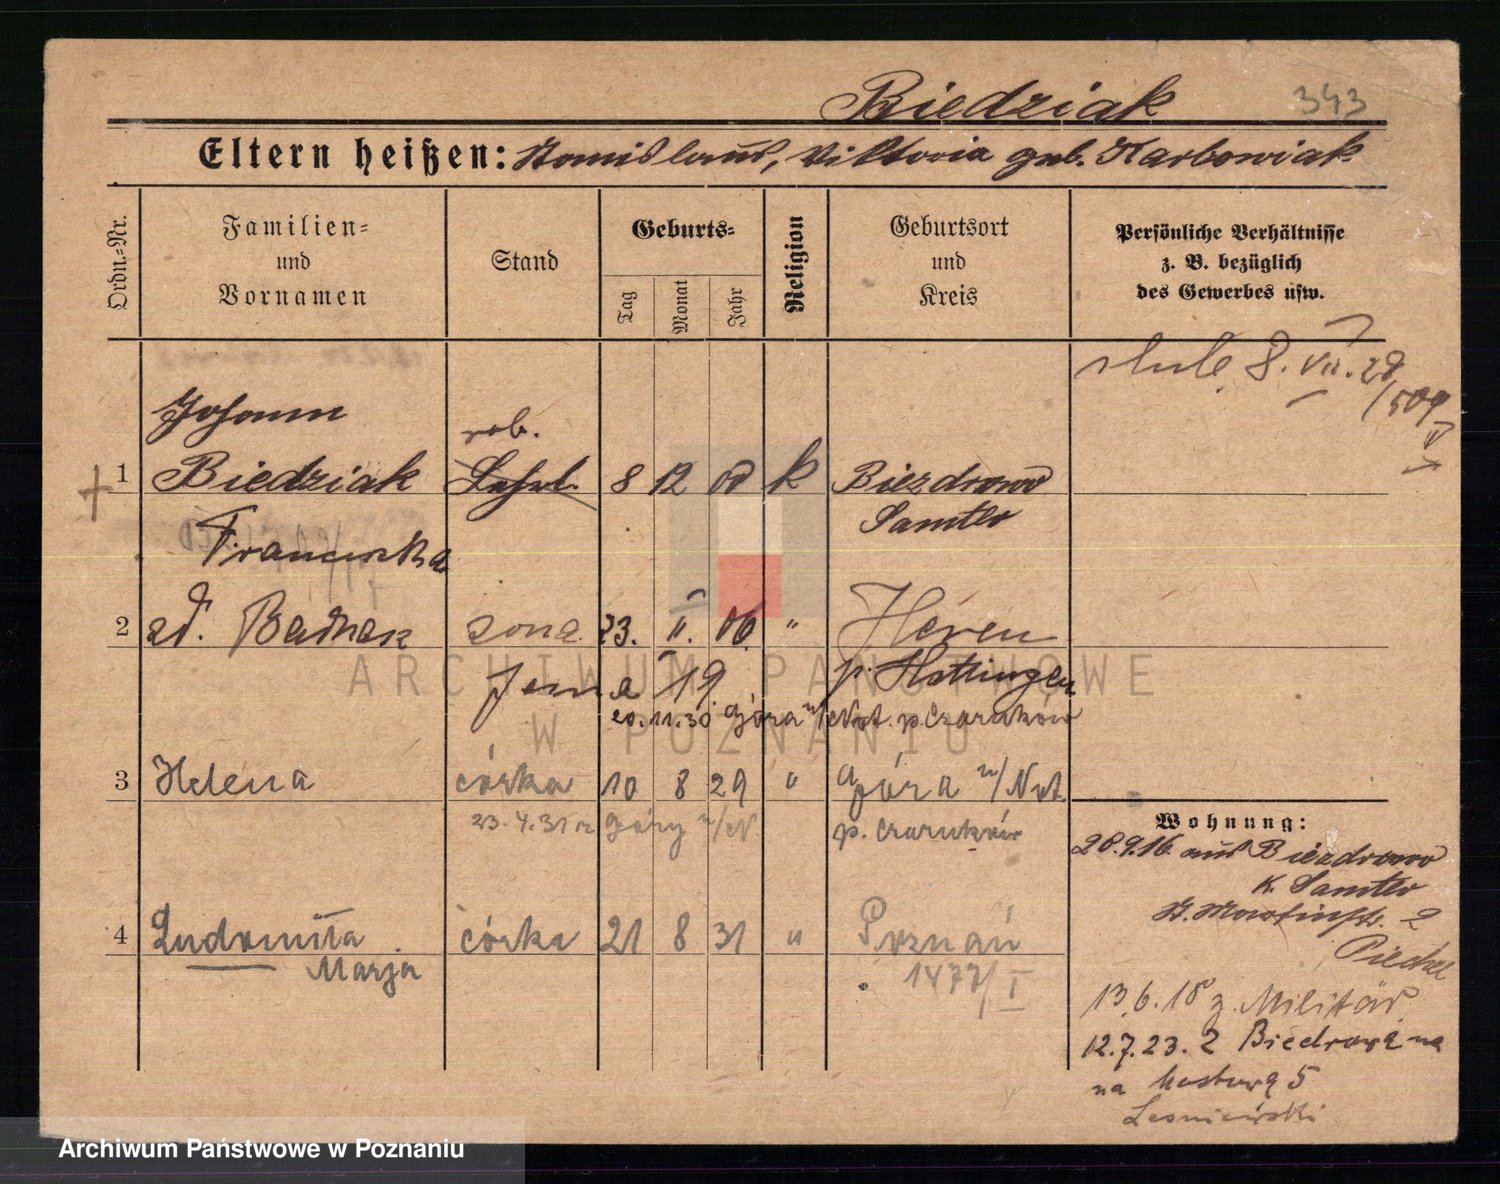 Biedziak 343
Eltern heißen: Stanislaus, Viktoria geb. Karbowiak
Ordn.-Nr.
Familien-
und
Vornamen
Stand
Geburts-
Tag
Monat
Jahr
Religion
Geburtsort
und
Kreis
Persönliche Verhältnisse
z. B. bezüglich
des Gewerbes usw.
8. VII. 28
/509
Johann
rob.
1 Biedziak Lehrl. 8 12 00 k Biezdrowo
Samter
Franciszka
2 żona 23. II. 06 " Heren
19 p. Hattingen
20.11.30 Góra n/Not. p. Czarnków
3 Helena córka 10 8 29 " Góra n/Not.
23.4.31 z Góry n/N p. Czarnków
4 Ludomiła córka 21 8 31 " Poznań
Marja 1477/I
Wohnung:
28.9.16. aus Biezdrowo
K. Samter
2
13.6.18 z. Militär
12.7.23. z Biedrowa na
na 5
ARCHIWUM PAŃSTWOWE
W POZNANIU
Archiwum Państwowe w Poznaniu